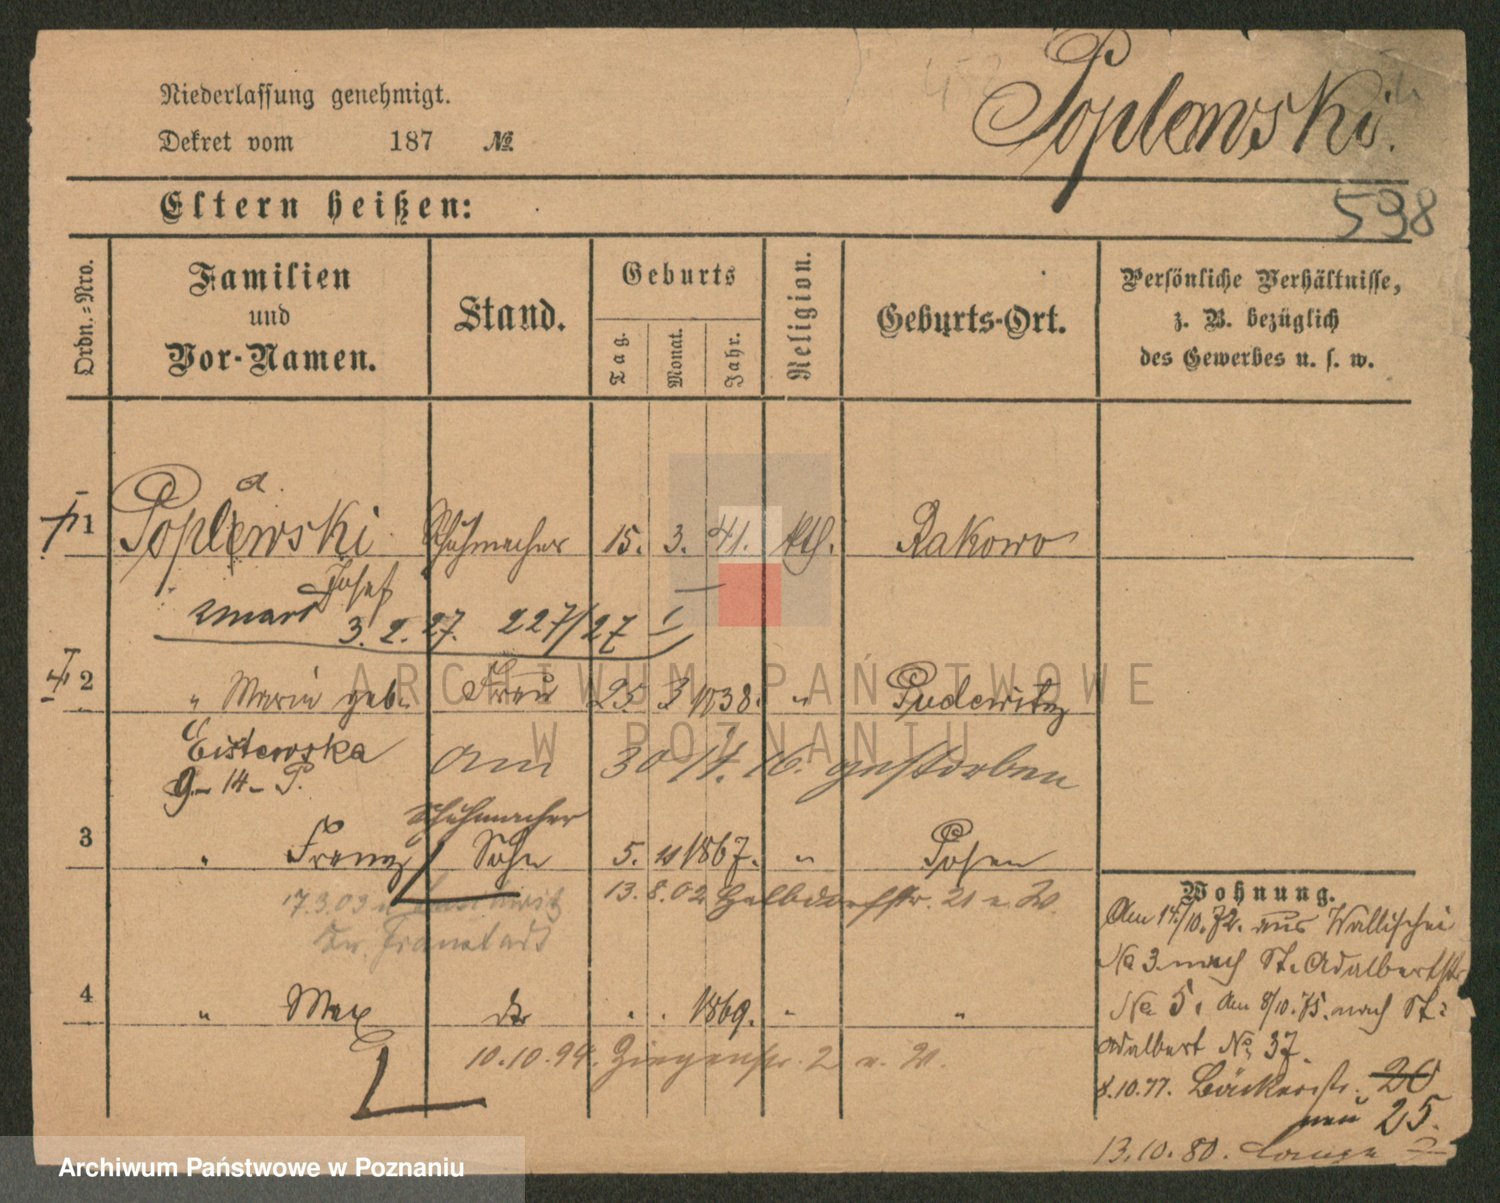 Niederlassung genehmigt.
Poplewski.
Dekret vom 187 №.
598
Eltern heißen:
Ordn.-Nro.
Familien
und
Vor-Namen.
Stand.
Geburts
Tag.
Monat.
Jahr.
Religion.
Geburts-Ort.
Persönliche Verhältnisse,
z. B. bezüglich
des Gewerbes u. s. w.
a.
1 Poplewski Schuhmacher 15. 3. 41. kth. Rakowo
Josef
zmarł 3. 2. 27. 227/27 I
2 " Maria geb. Frau 25 3 1838. " Pudewitz
am 30/4. 16. gestorben
9-14-P.
Schuhmacher
3 " Franz Sohn 5. 1867. " Posen
17.3.03 Kr. Fraustadt
13.8.02 Halbdorfstr. 21 e. W.
4 " Max do . . 1869. " "
10.10.94. Ziegenstr. 2 e. W.
Wohnung.
Am 14/10.72. aus Wallischei
No 3 nach St. Adalbertstr
No 5. Am 8/10.75. nach St.
Adalbert No 37.
8.10.77. Bäckerstr. 20
neu 25.
13.10.80.
ARCHIWUM PAŃSTWOWE
W POZNANIU
Archiwum Państwowe w Poznaniu